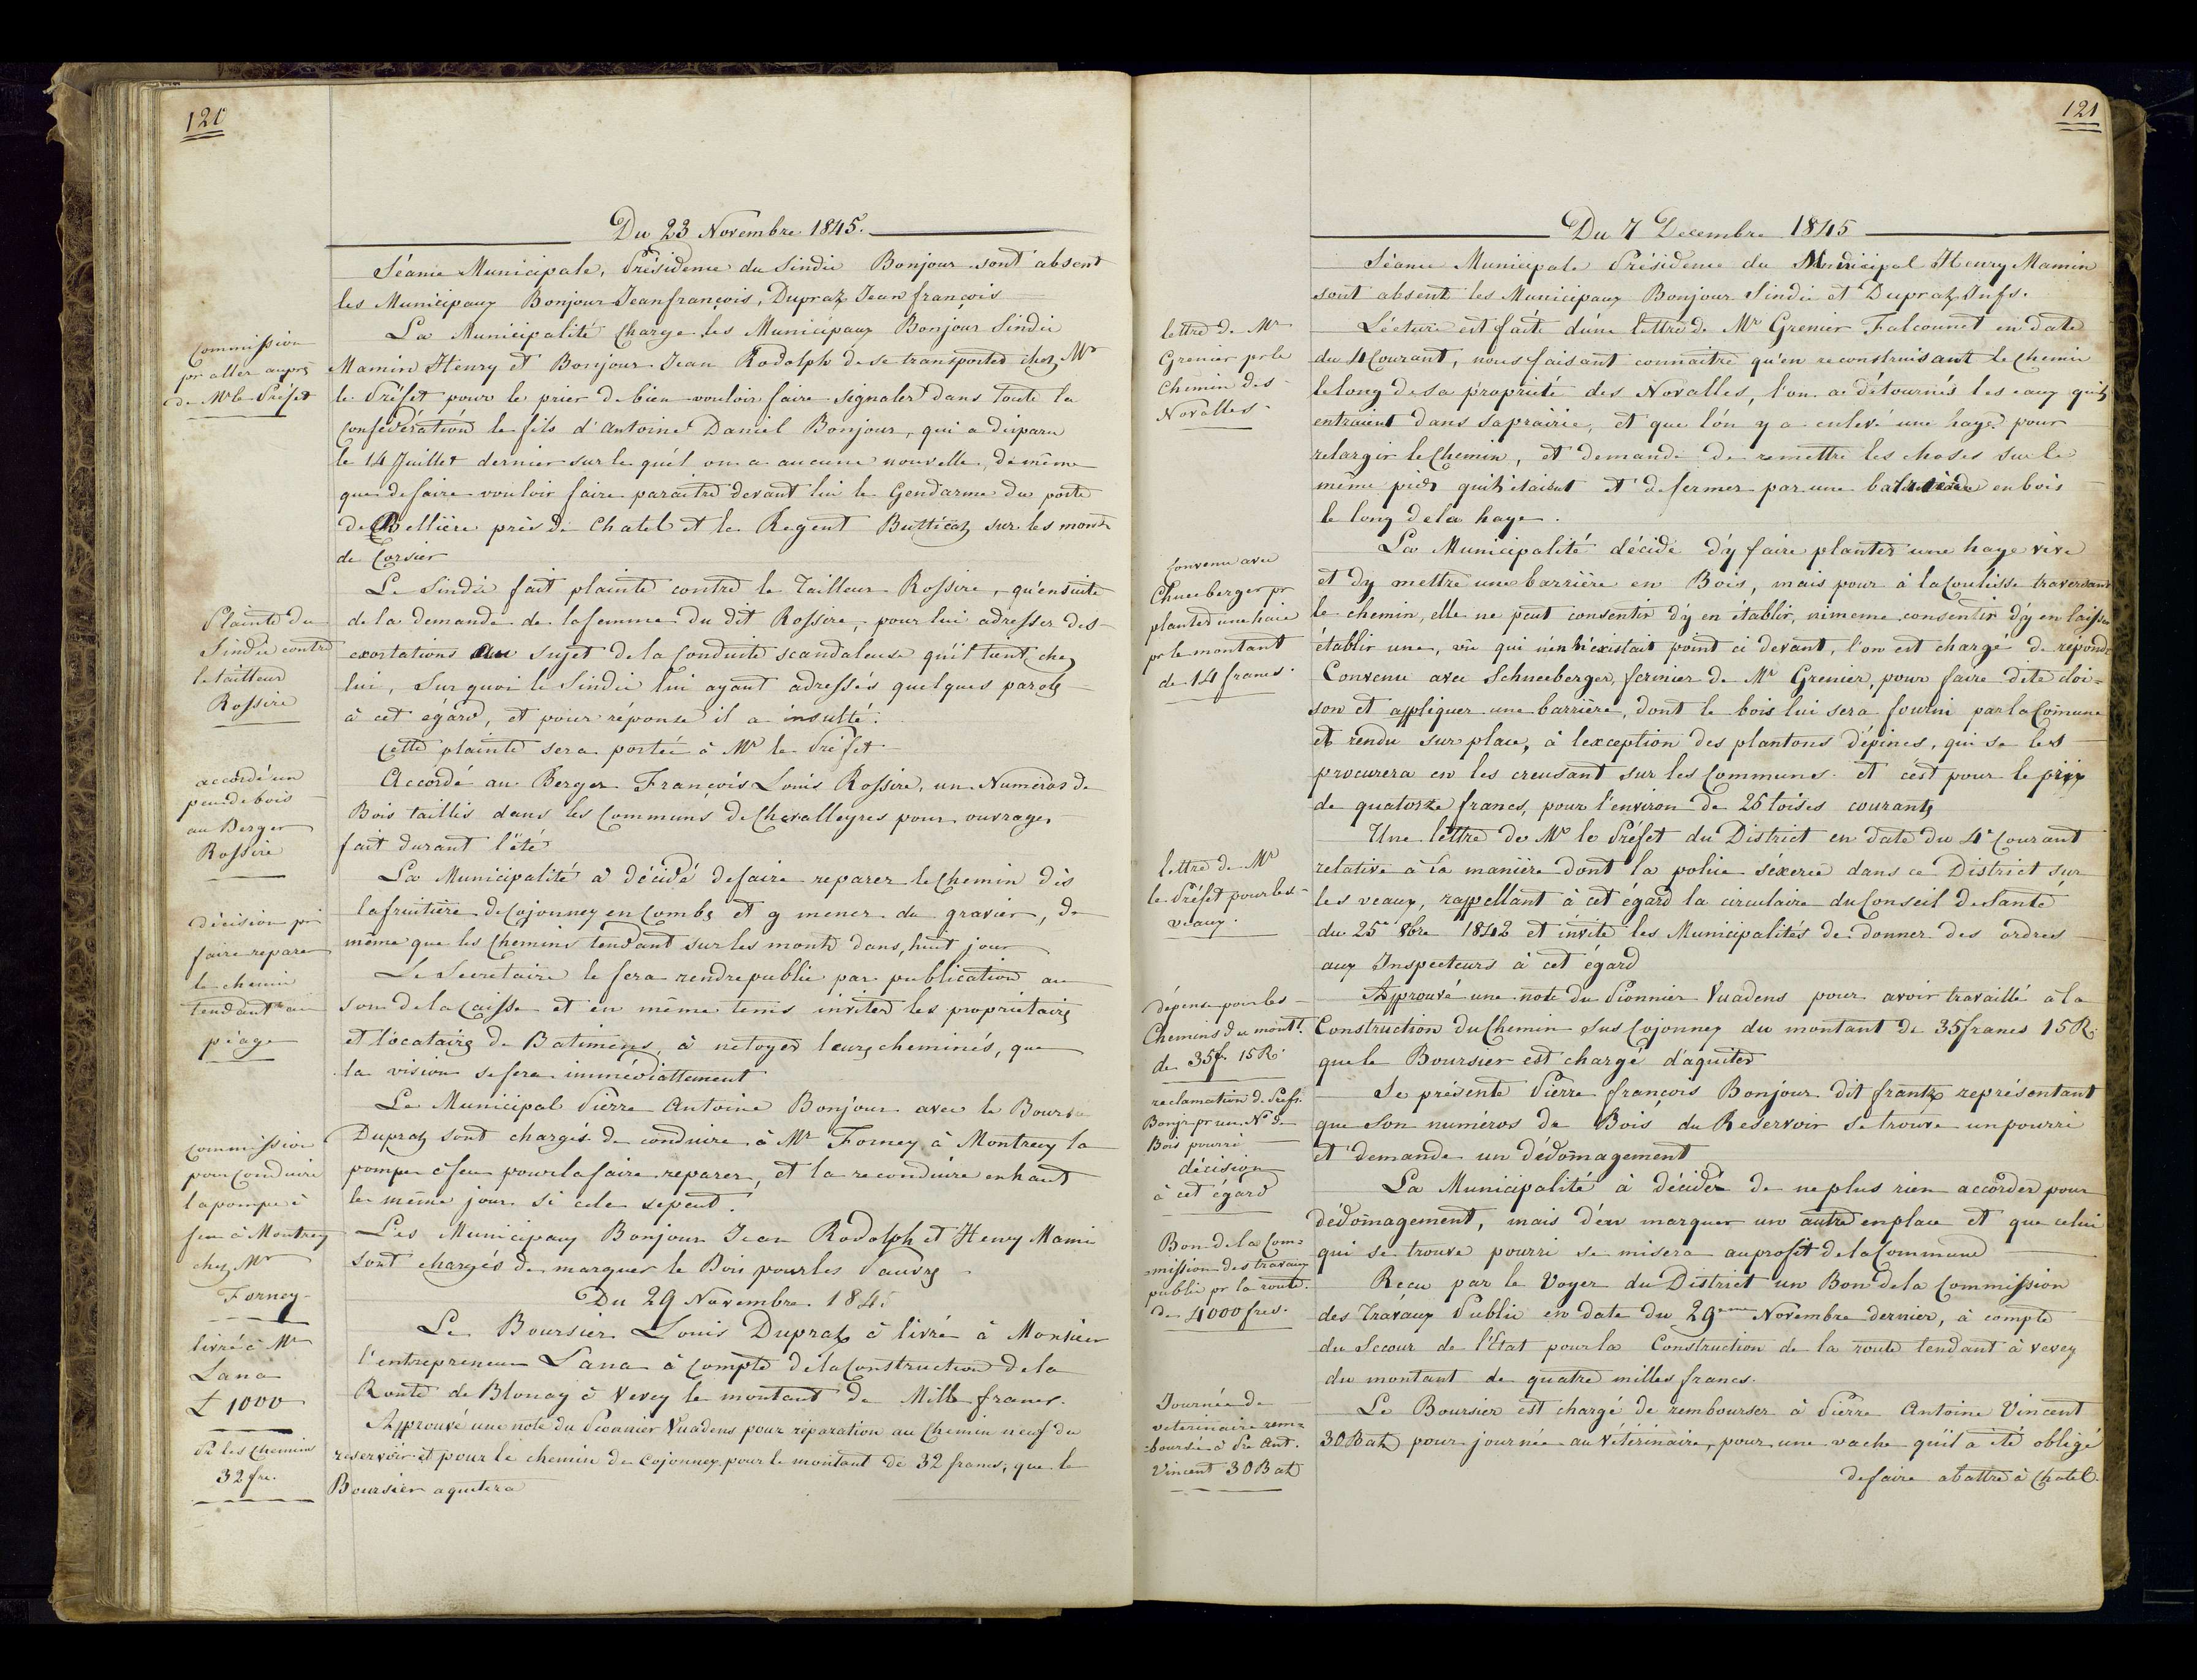 120
Du 23 Novembre 1845.
Séance Municipale, Présidence du Sindic Bonjour sont absent
les Municipaux Bonjour Jean françois, Dupraz Jean françois
commission
pr aller auprès
de Mr le Préfet
La Municipalité Charge les Municipaux Bonjour Sindic
Mamin Henry et Bonjour Jean Rodolph de se transporter chez Mr
le Préfet pour le prier de bien vouloir faire signaler dans toute la
Confédération le fils d'Antoine Daniel Bonjour, qui a disparu
le 14 Juillet dernier sur le quél on a aucune nouvelle, de même
que de faire vouloir faire paraitre devant lui le Gendarme du poste
de Bellière près de Chatel et le Regent Butticaz sur les monts
de Corsier
Plainte du
Sindic contre
le tailleur
Rossire
Le Sindic fait plainte contre le Tailleur Rossire, qu'ensuite
de la demande de la femme du dit Rossire, pour lui adresser des
exortations au sujet de la Conduite scandaleuse qu'il tient chez
lui, Sur quoi le Sindic lui ayant adressés quelques parols
à cet égard, et pour réponse il a insulté.
Cette plainte sera portée à Mr le Préfet.
accordé un
peu de bois
au Berger
Rossire
Accordé au Berger François Louis Rossire, un Numéros de
Bois taillis dans les Communs de Chevalleyres pour ouvrages
fait durant l'été
décision pr
faire reparer
le chemin
tendant au
péage
La Municipalité à décidé de faire reparer le Chemin dès
la fruitière de Cojonney en Combs et y mener du gravier, de
même que les Chemins tendant sur les monts dans, huit jour
Le Secretaire le fera rendre public par publication au
son de la Caisse et en même tems inviter les proprietairs
et l'ocatairs de Batimens, à netoyer leurs cheminés, que
la vision se fera immédiattement
commission
pour conduire
la pompe à
feu à Montrey
chez Mr
Forney
Le Municipal Pierre Antoine Bonjour avec le Boursier
Dupraz sont chargés de conduire à Mr Forney à Montreux la
pompe à feu pour la faire reparer, et la reconduire en haut
le même jour si cela se peut.
Les Municipaux Bonjour Jean Rodolph et Henry Mami
sont chargés de marquer le Bois pour les Pauvrs
Du 29 Novembre 1845
livré à Mr
Lana
£ 1000
Le Boursier Louis Dupraz à livré à Monsieur
l'entrepreneur Lana à Compte de la Construction de la
Route de Blonay à Vevey le montant de Mille francs.
Pr les Chemins
32 frc.
Approuvé une note du Pionnier Vuadens pour réparation au Chemin neuf du
reservoir et pour le chemin de Cojonney pour le montant de 32 francs, que le
Boursier aquitera
121
Du 7 Decembre 1845
Séance Municipale Présidence du Municipal Henry Mamin
sont absent les Municipaux Bonjour Sindic et Dupraz Jnfs.
lettre de Mr
Grenier pr le
Chemin des
Novalles
Lécture est faite d'une lettre de Mr Grenier Falcounet en date
du 4 Courant, nous faisant connaitre qu'en reconstruisant le Chemin
le long de sa propriété des Novalles, l'on a détournés les eaux qui
entraient dans sa prairie, et que l'on y a enlevé une haye pour
relargir le Chemin, et demande de remettre les choses sur le
même pied qu'ils étaient et de fermer par une en bois
le long de la haye.
convenu avec
Chneeberger pr
planter une haie
pr le montant
de 14 francs
La Municipalité décide d'y faire planter une haye vive
et d'y mettre une barrière en Bois, mais pour à la Coulisse traversant
le chemin, elle ne peut consentir d'y en établir, ni meme consentir d'y en laisser
établir une, vu qui n'en n'éxistait point ci devant, l'on est chargé de repondre
Convenu avec Schneeberger, fermier de Mr Grenier, pour faire dite cloi=
son et appliquer une barrière, dont le bois lui sera fourni par la Comune
et rendu sur place, à l'exception des plantons d'épines, qui se les
procurera en les creusant sur les Communs. et c'est pour le prix
de quatorze francs, pour l'environ de 26 toises courants
lettre de Mr
le Préfet pour les
veaux.
Une lettre de Mr le Préfet du District en date du 4e Courant
relative à la manière dont la police s'éxerce dans ce District sur
les veaux, rappellant à cet égard la circulaire du Conseil de Santé
du 25e 8bre 1842 et invite les Municipalités de donner des ordres
aux Inspecteurs à cet égard
dépense pour les
Chemins du mont.
de 35f. 15 R.
Approuvé une note du Pionnier Vuadens pour avoir travaillé à la
Construction du Chemin sus Cojonney du montant de 35 francs 15 R.
que le Boursier est chargé d'aquiter
reclamation d.
Bonjr pr un No de
Bois pourri
décision
à cet égard
Se présente Pierre françois Bonjour dit frantz représentant
que Son numéros de Bois du Reservoir se trouve un pourri
et demande un dédomagement
La Municipalité à décidé de ne plus rien accorder pour
dédomagement, mais d'en marquer un autre en place et que celui
qui se trouve pourri se misera au profit de la Commune
Bon de la Com=
=mission des travaux
public pr la route
de 4000 frcs.
Recu par le Voyer du District un Bon de la Commission
des Travaux Public en date du 29eme Novembre dernier, à compte
du Secour de l'Etat pour la Construction de la route tendant à vevey
du montant de quatre milles francs.
Journée de
veterinaire rem=
=boursé à Pre Ant.
Vincent 30 Batz
Le Boursier est chargé de rembourser à Pierre Antoine Vincent
30 Batz pour journée au véterinaire, pour une vache qu'il a été obligé
de faire abattre à Chatel.